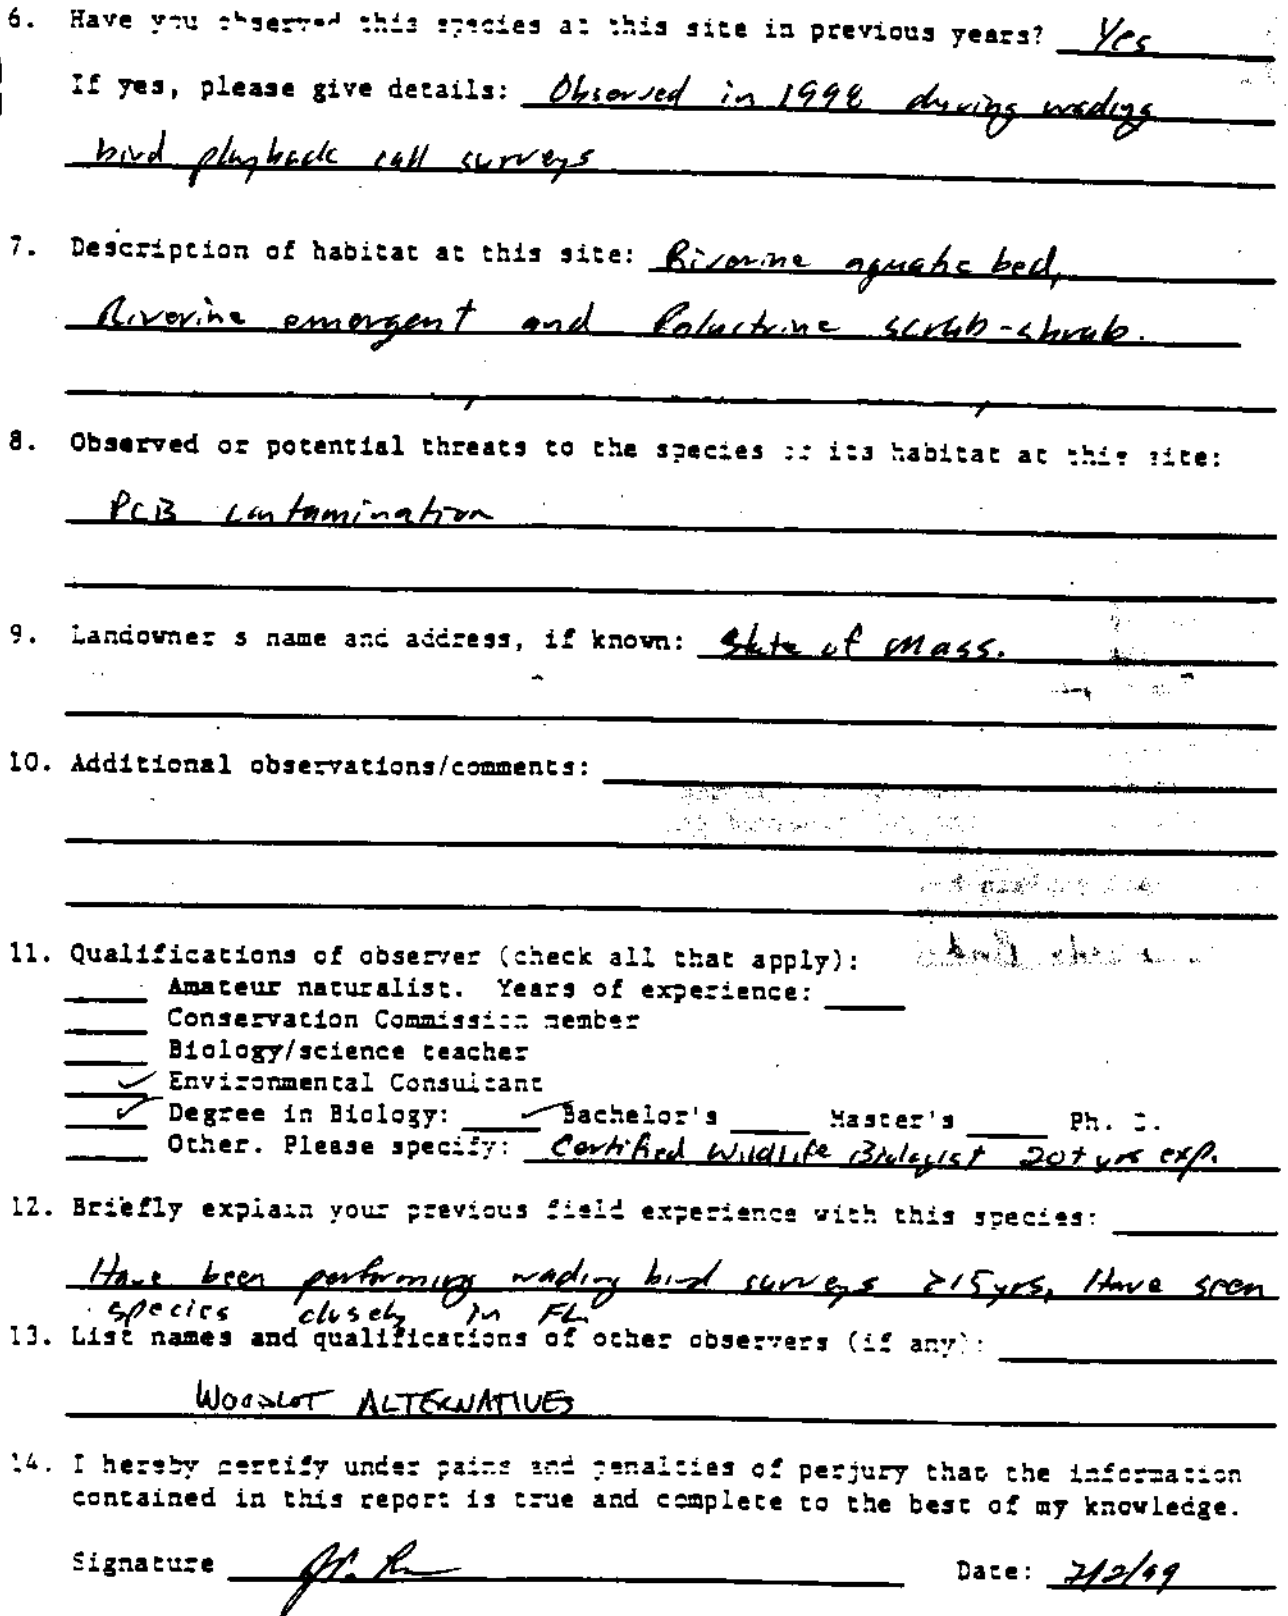 6. Have you observed this species at this site in previous years? Yes
If yes, please give details: Observed in 1998 during wading
bird playback call surveys
7. Description of habitat at this site: Riverine aquatic bed,
Riverine emergent and Palustrine scrub-shrub.
8. Observed or potential threats to the species or its habitat at this site:
PCB contamination
9. Landowner s name and address, if known: State of Mass.
10. Additional observations/comments:
11. Qualifications of observer (check all that apply):
Amateur naturalist. Years of experience:
Conservation Commission member
Biology/science teacher
✓ Environmental Consultant
✓ Degree in Biology: ✓ Bachelor's Master's Ph. D.
Other. Please specify: Certified Wildlife Biologist 20+ yrs exp.
12. Briefly explain your previous field experience with this species:
Have been performing wading bird surveys >15yrs, Have seen
species closely in FL.
13. List names and qualifications of other observers (if any):
WOODLOT ALTERNATIVES
14. I hereby certify under pains and penalties of perjury that the information
contained in this report is true and complete to the best of my knowledge.
Signature Date: 7/2/99